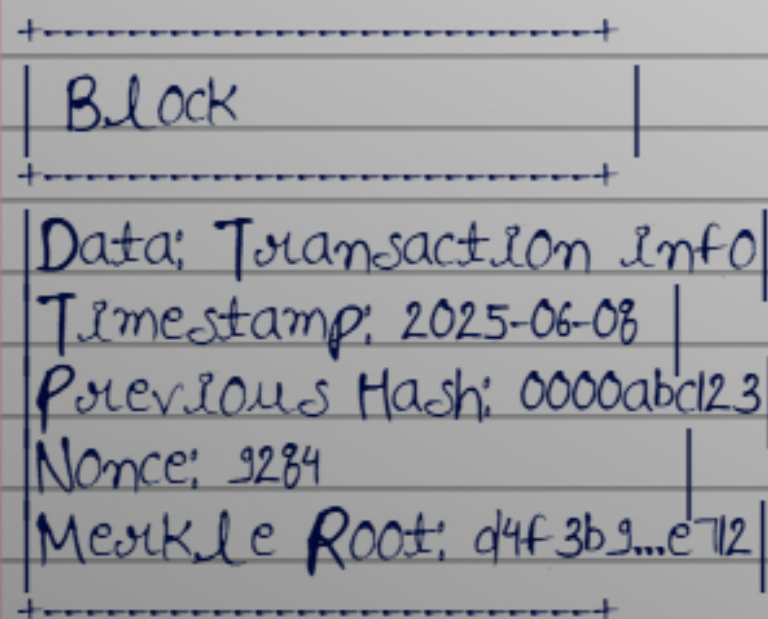 +-----------------------------------+
| Block |
+-----------------------------------+
|Data: Transaction info|
|Timestamp: 2025-06-08 |
|Previous Hash: 0000abc123
|Nonce: 9284 |
|Merkle Root: d4f3b9...e712|
+-----------------------------------+